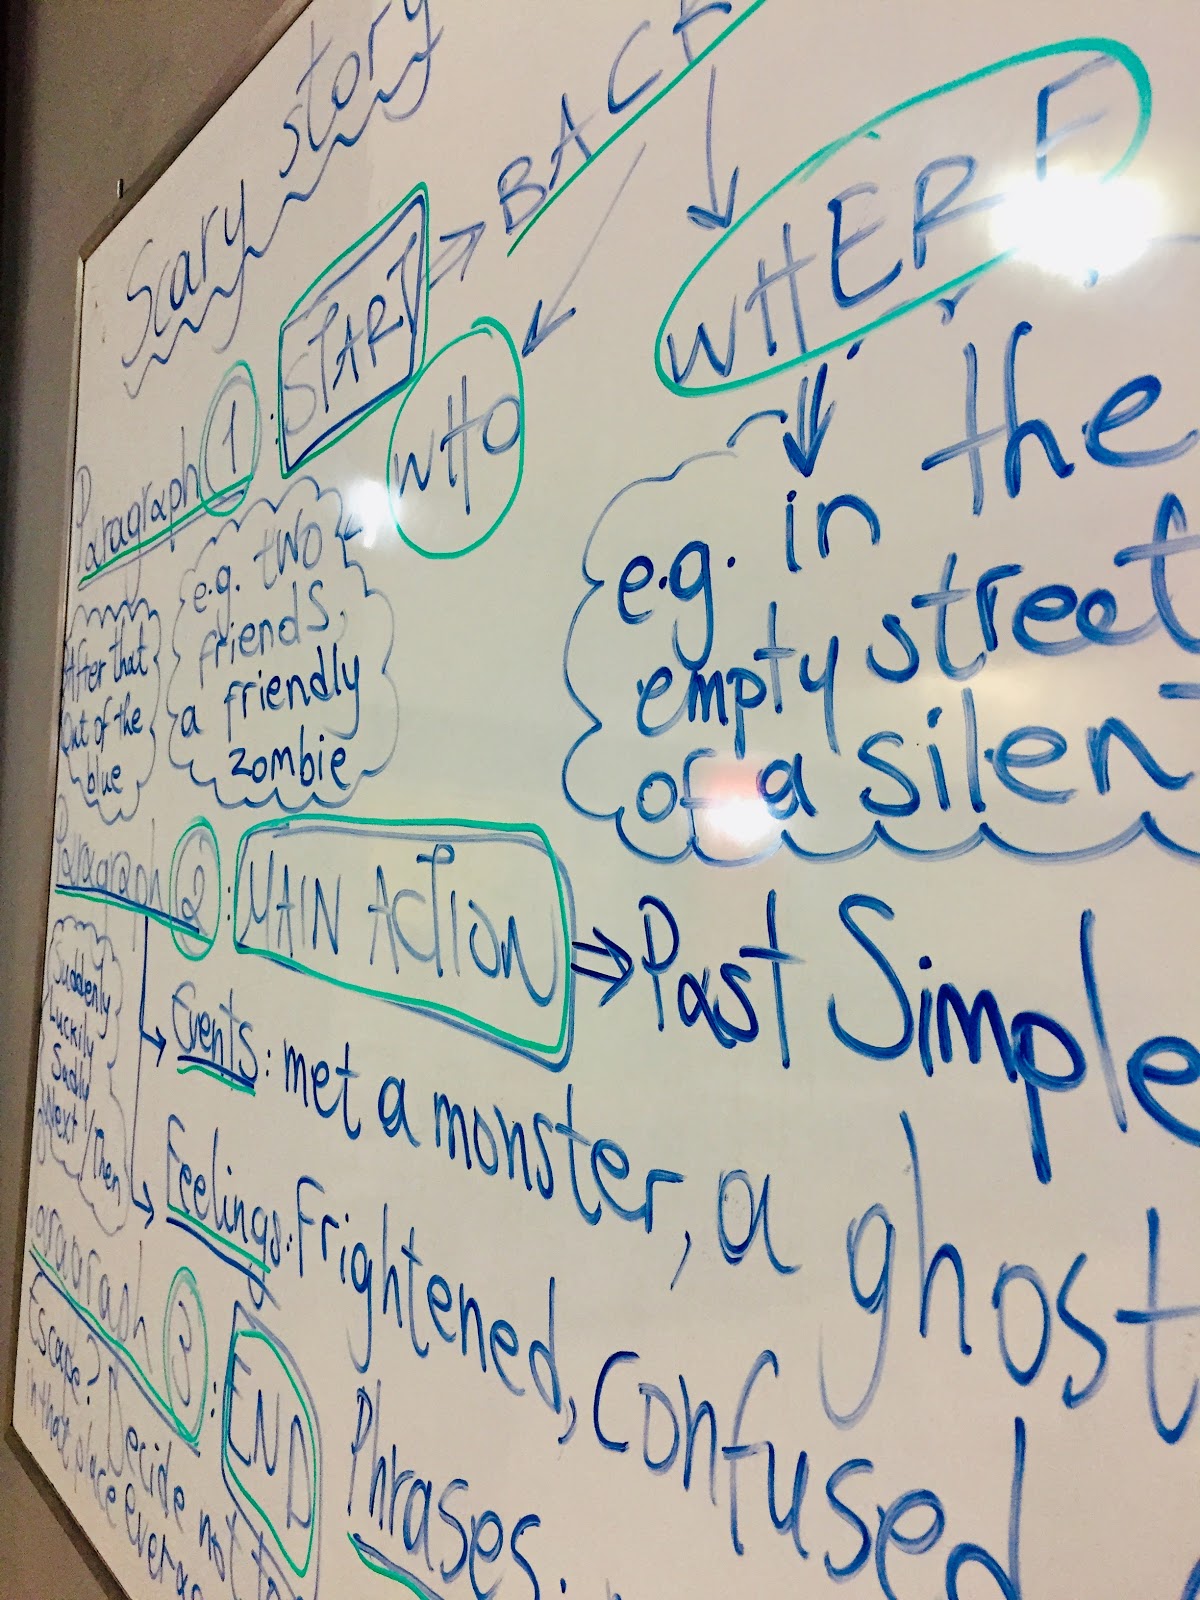 Scary story
Paragraph 1 : START BACK
WHO
WHERE
e.g. two
friends,
a friendly
zombie
e.g. in the
empty street
of a silen
After that
Out of the
blue
Paragraph 2 : MAIN ACTION Past Simple
Suddenly
Luckily
Sadly
Next/then
Events: met a monster, a ghost
Feelings: frightened, confused
aragraph 3 : END Phrases:
Escape? Decide not to
in that place ever